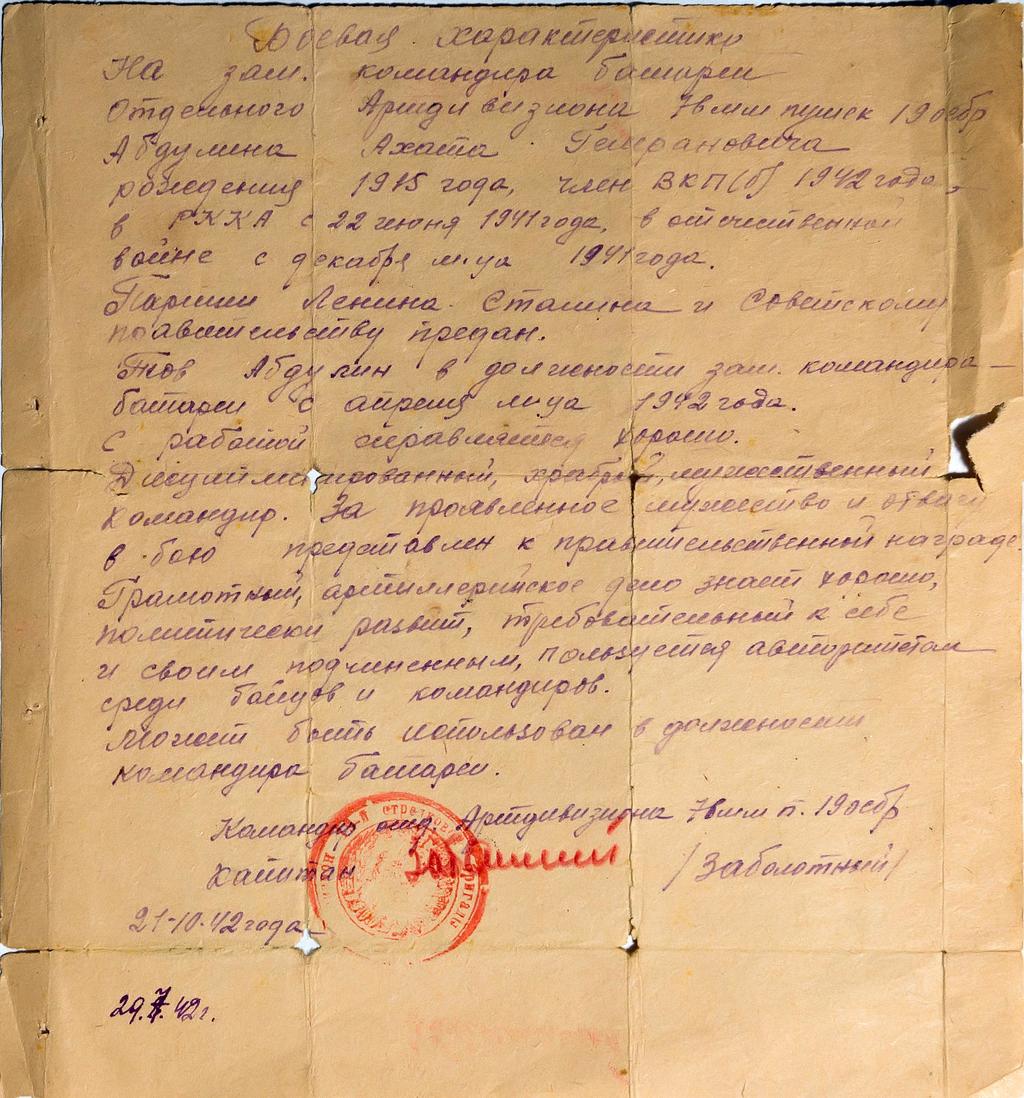 Боевая характеристика
На зам. командира батареи
Отдельного Артдивизиона 76мм пушек 19 осбр
Абдулина Ахата
рождения 1915 года, член ВКП(б) 1942 года,
в РККА с 22 июня 1941 года, в отечественной
войне с декабря м-ца 1941 года.
Партии Ленина Сталина и Советскому
правительству предан.
Тов Абдулин в должности зам. командира
батареи с апреля м-ца 1942 года.
С работой справляется хорошо.
Дисциплинированный, храбрый, мужественный
командир. За проявленное мужество и отвагу
в бою представлен к правительственной награде.
Грамотный, артиллерийское дело знает хорошо,
политически развит, требовательный к себе
и своим подчиненным, пользуется авторитетом
среди бойцов и командиров.
Может быть использован в должности
командира батареи.
Командир отд. Артдивизиона 76мм п. 19 осбр
Капитан /Заболотный/
стрелковой бригады
21-10-42 года
42г.